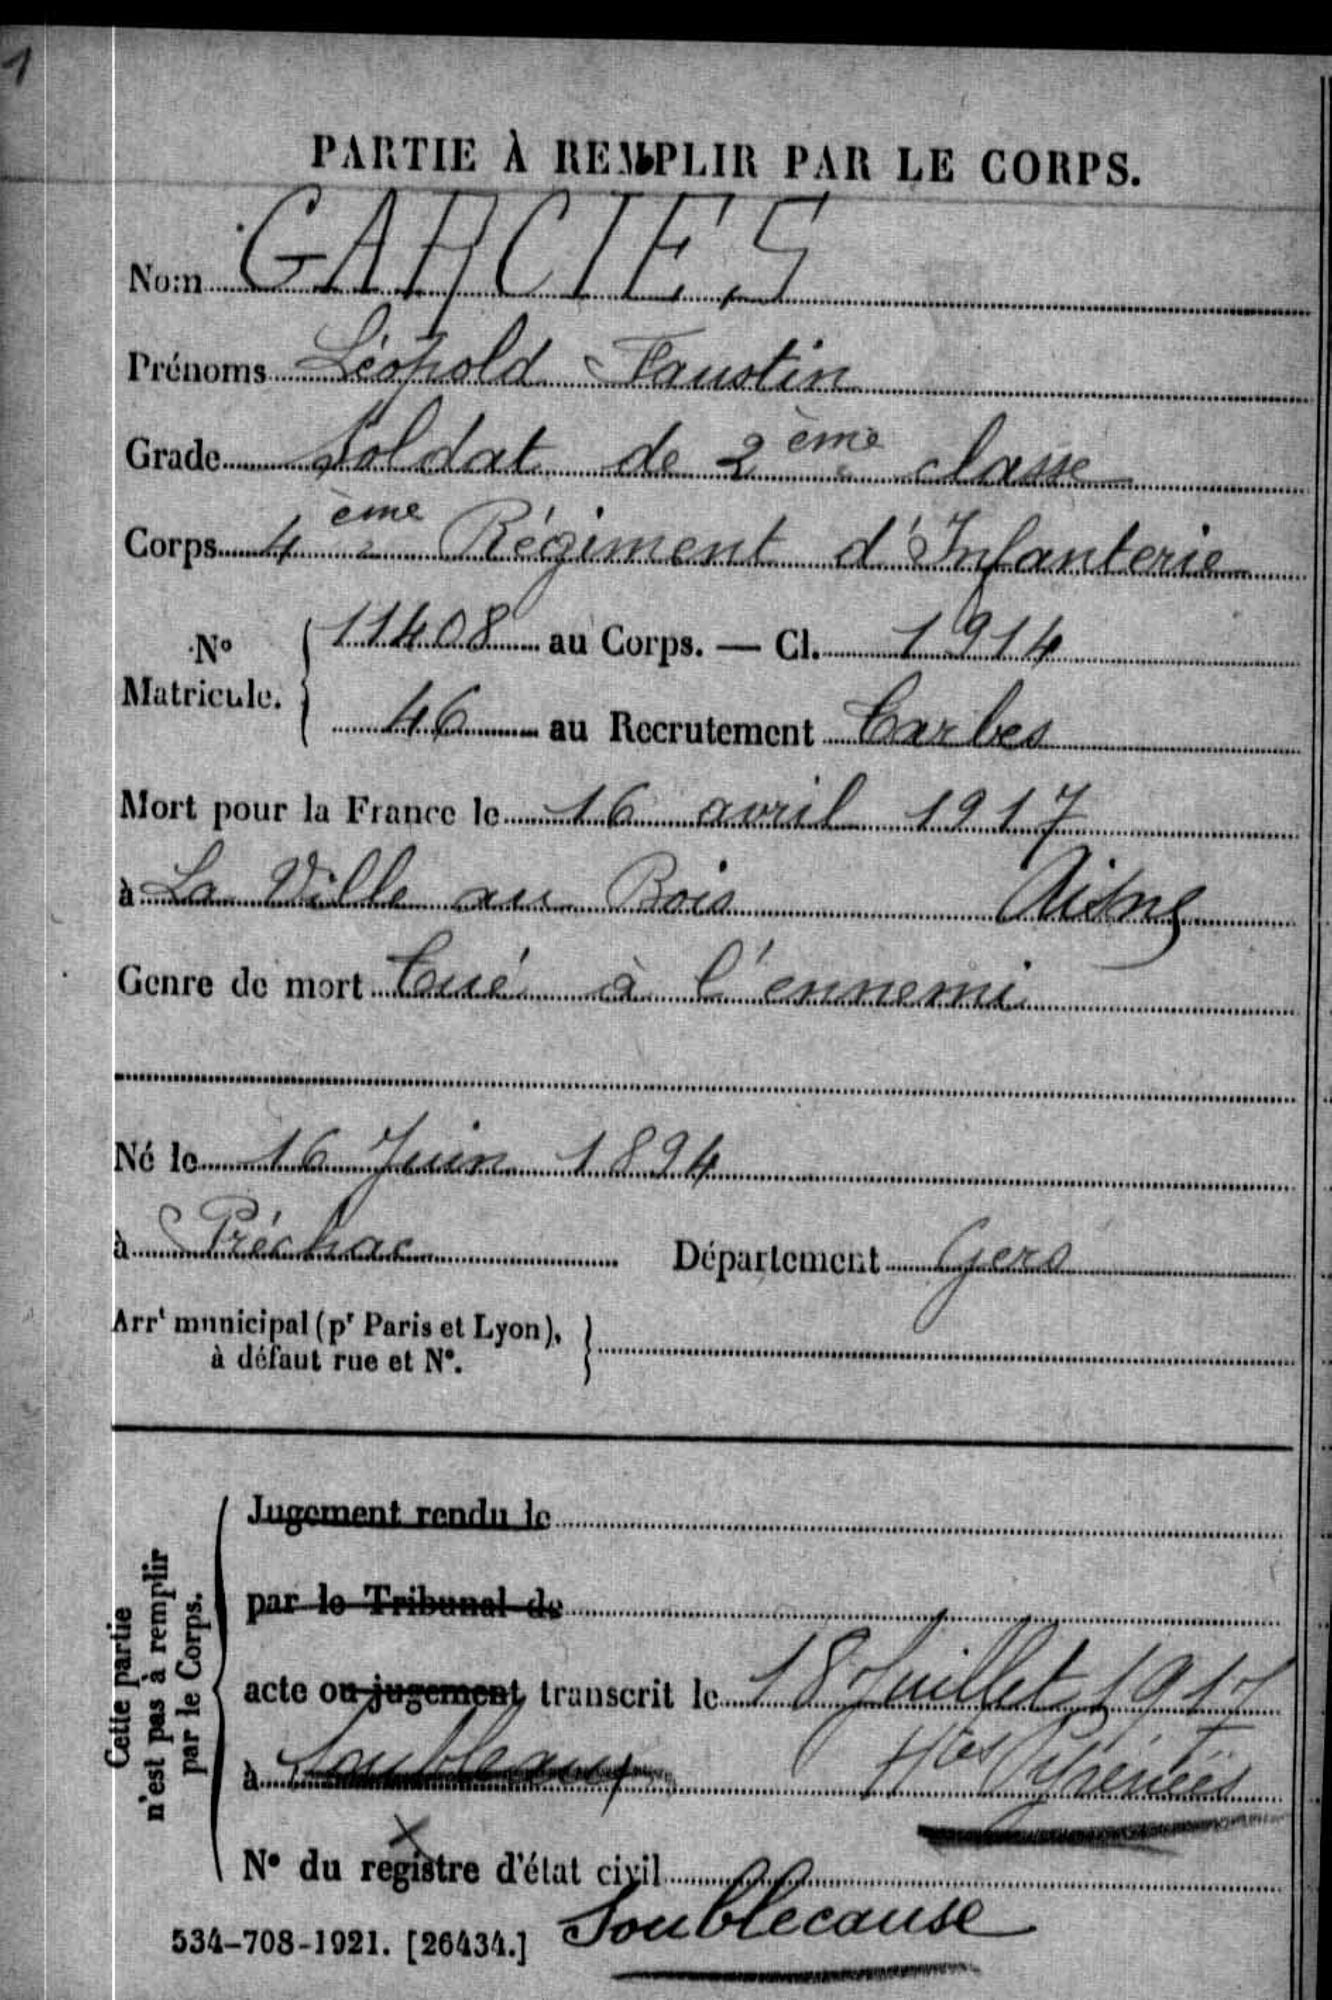 1
PARTIE À REMPLIR PAR LE CORPS.
Nom GARCIES
Prénoms Léopold Faustin
Grade Soldat de 2ème classe
Corps 4ème Régiment d'Infanterie
No Matricule. 11408 au Corps. — Cl. 1914
46 au Recrutement Tarbes
Mort pour la France le 16 avril 1917
à La Ville au Bois Aisne
Genre de mort Tué à l'ennemi
Né le 16 Juin 1894
à Préchac Département Gers
Arrt municipal (pr Paris et Lyon),
à défaut rue et No.
Cette partie
n'est pas à remplir
par le Corps.
Jugement rendu le
par le Tribunal de
acte ou jugement transcrit le 18 Juillet 1917
à Htes Pyrénées
No du registre d'état civil
534-708-1921. [26434.] Soublecause